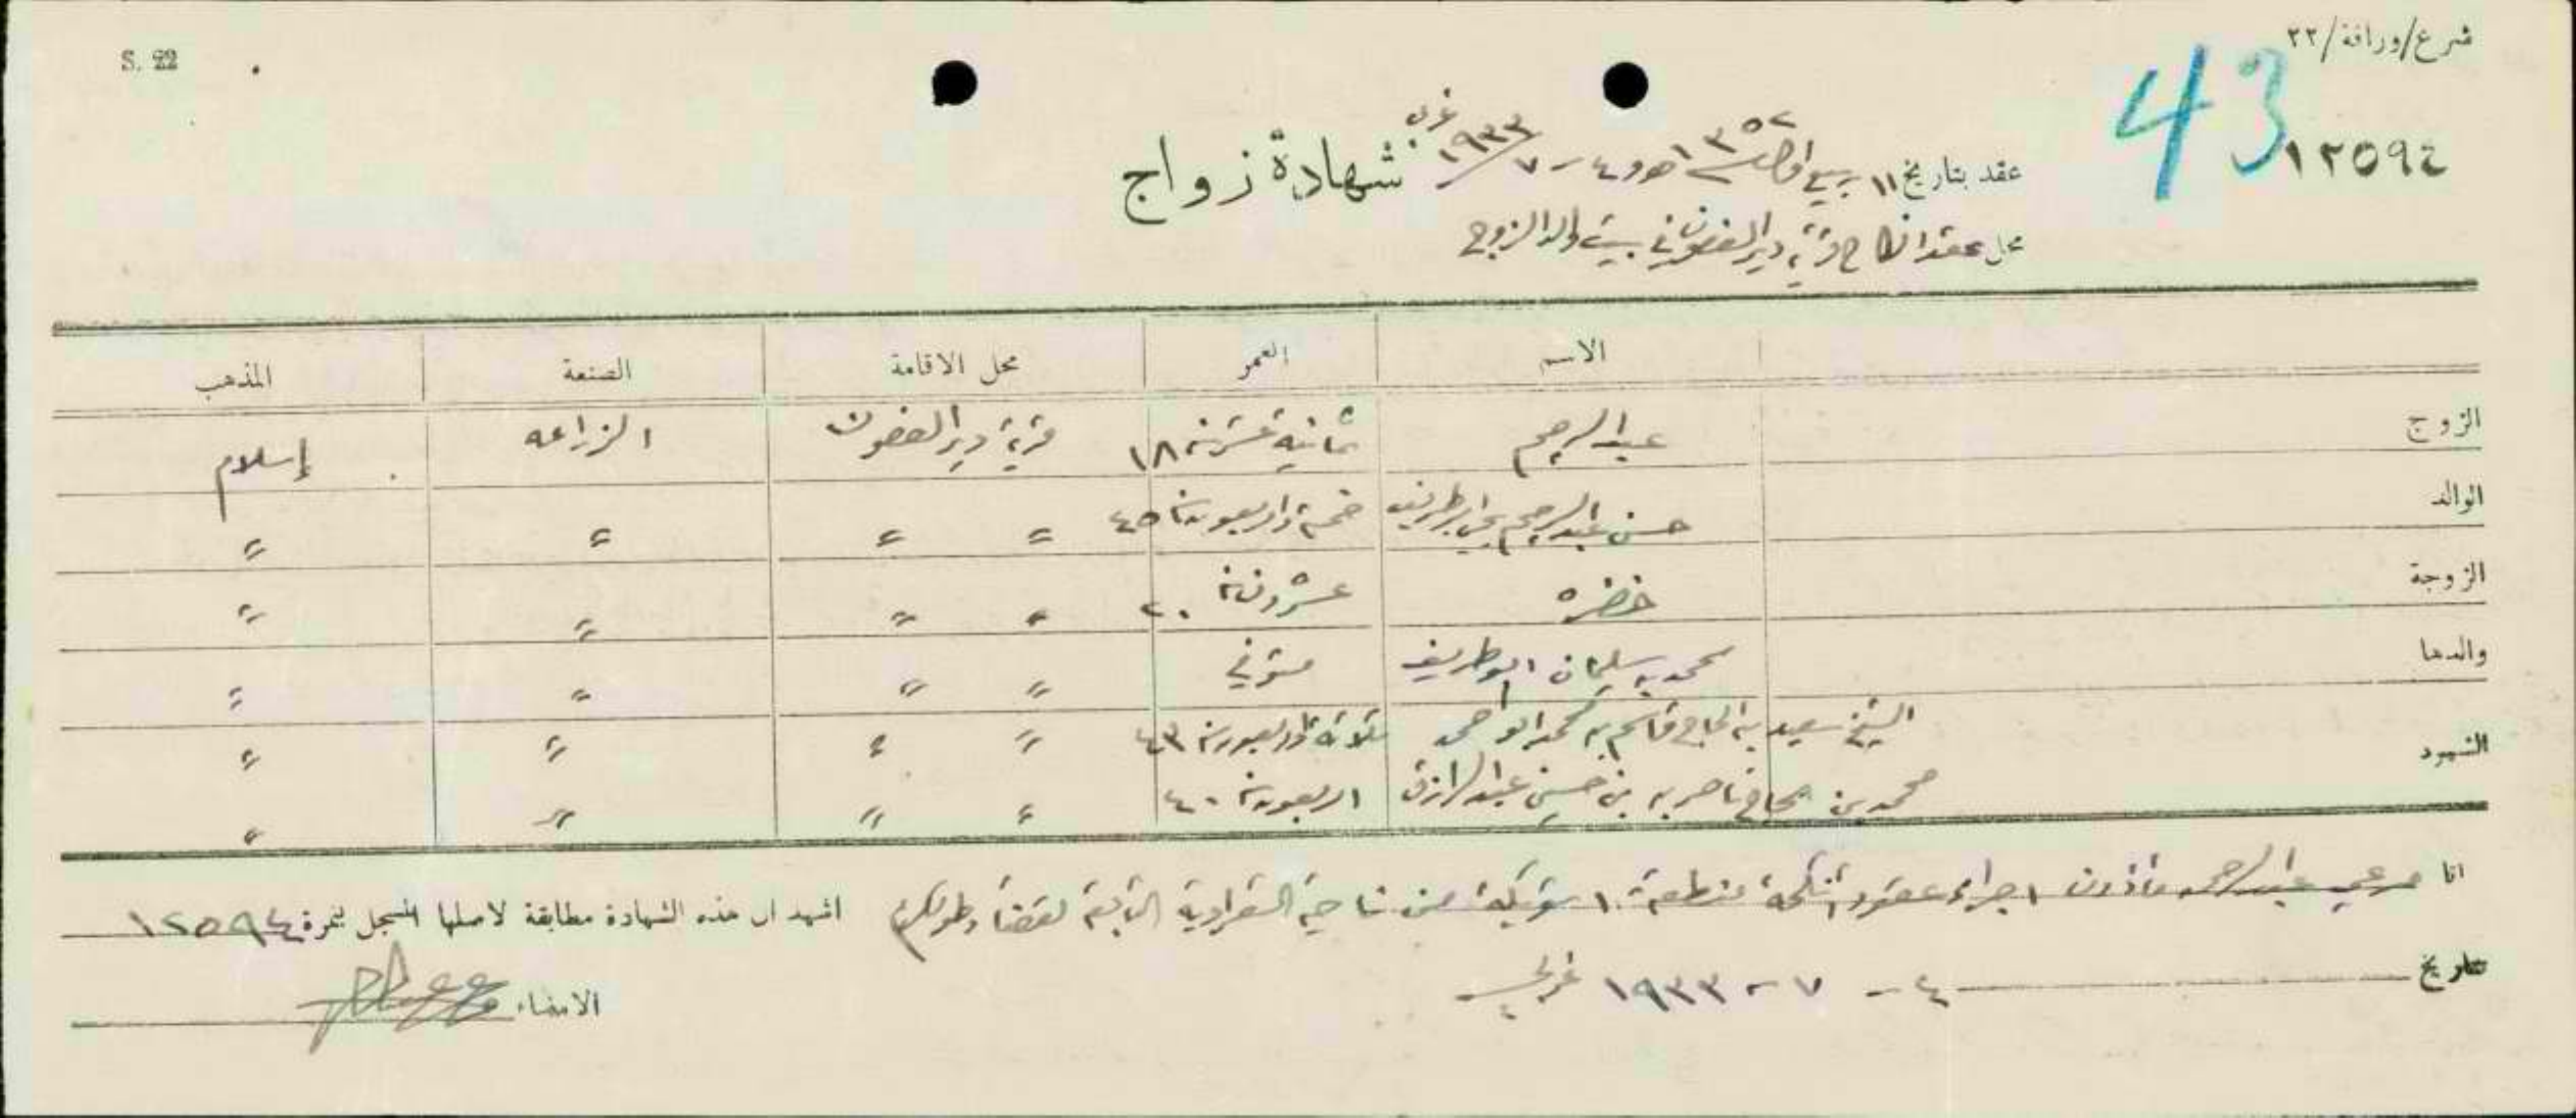 شرع/وراقة/٢٢
S. 22
43
١٢٥٩٤
عقد بتاريخ ١١ ربيع اول سنة ١٣٥٢ هـ و ٤ - ٧ / ١٩٣٣ غربي
شهادة زواج
محل عقد النكاح قرية دير الغصون في بيت والد الزوج
الاسم العمر محل الاقامة الصنعة المذهب
الزوج عبد الرحيم ثمانية عشر سنة ١٨ قرية دير الغصون الزراعه إسلام
الوالد حسن عبد الرحيم ابو طريف خمسة واربعون سنة ٤٥ " " " "
الزوجة خضره عشرون سنة ٢٠ " " " "
والدها محمد سليمان ابو طريف متوفي " " " "
الشهود الشيخ سعيد بن الحاج قاسم بن محمد ثلاثة واربعون سنة ٤٣ " " " "
محمد بن الحاج ناصر بن حسين عبد الرازق اربعون سنة ٤٠ " " " "
انا مرعي عبد الرحمن مأذون اجراء عقود أنكحة منطقة شويكة من ناحية الشعراوية التابعة لقضاء طولكرم اشهد ان هذه الشهادة مطابقة لاصلها المسجل بنمرة ١٢٥٩٤
بتاريخ ٤ - ٧ - ١٩٣٣ غربي
الامضاء